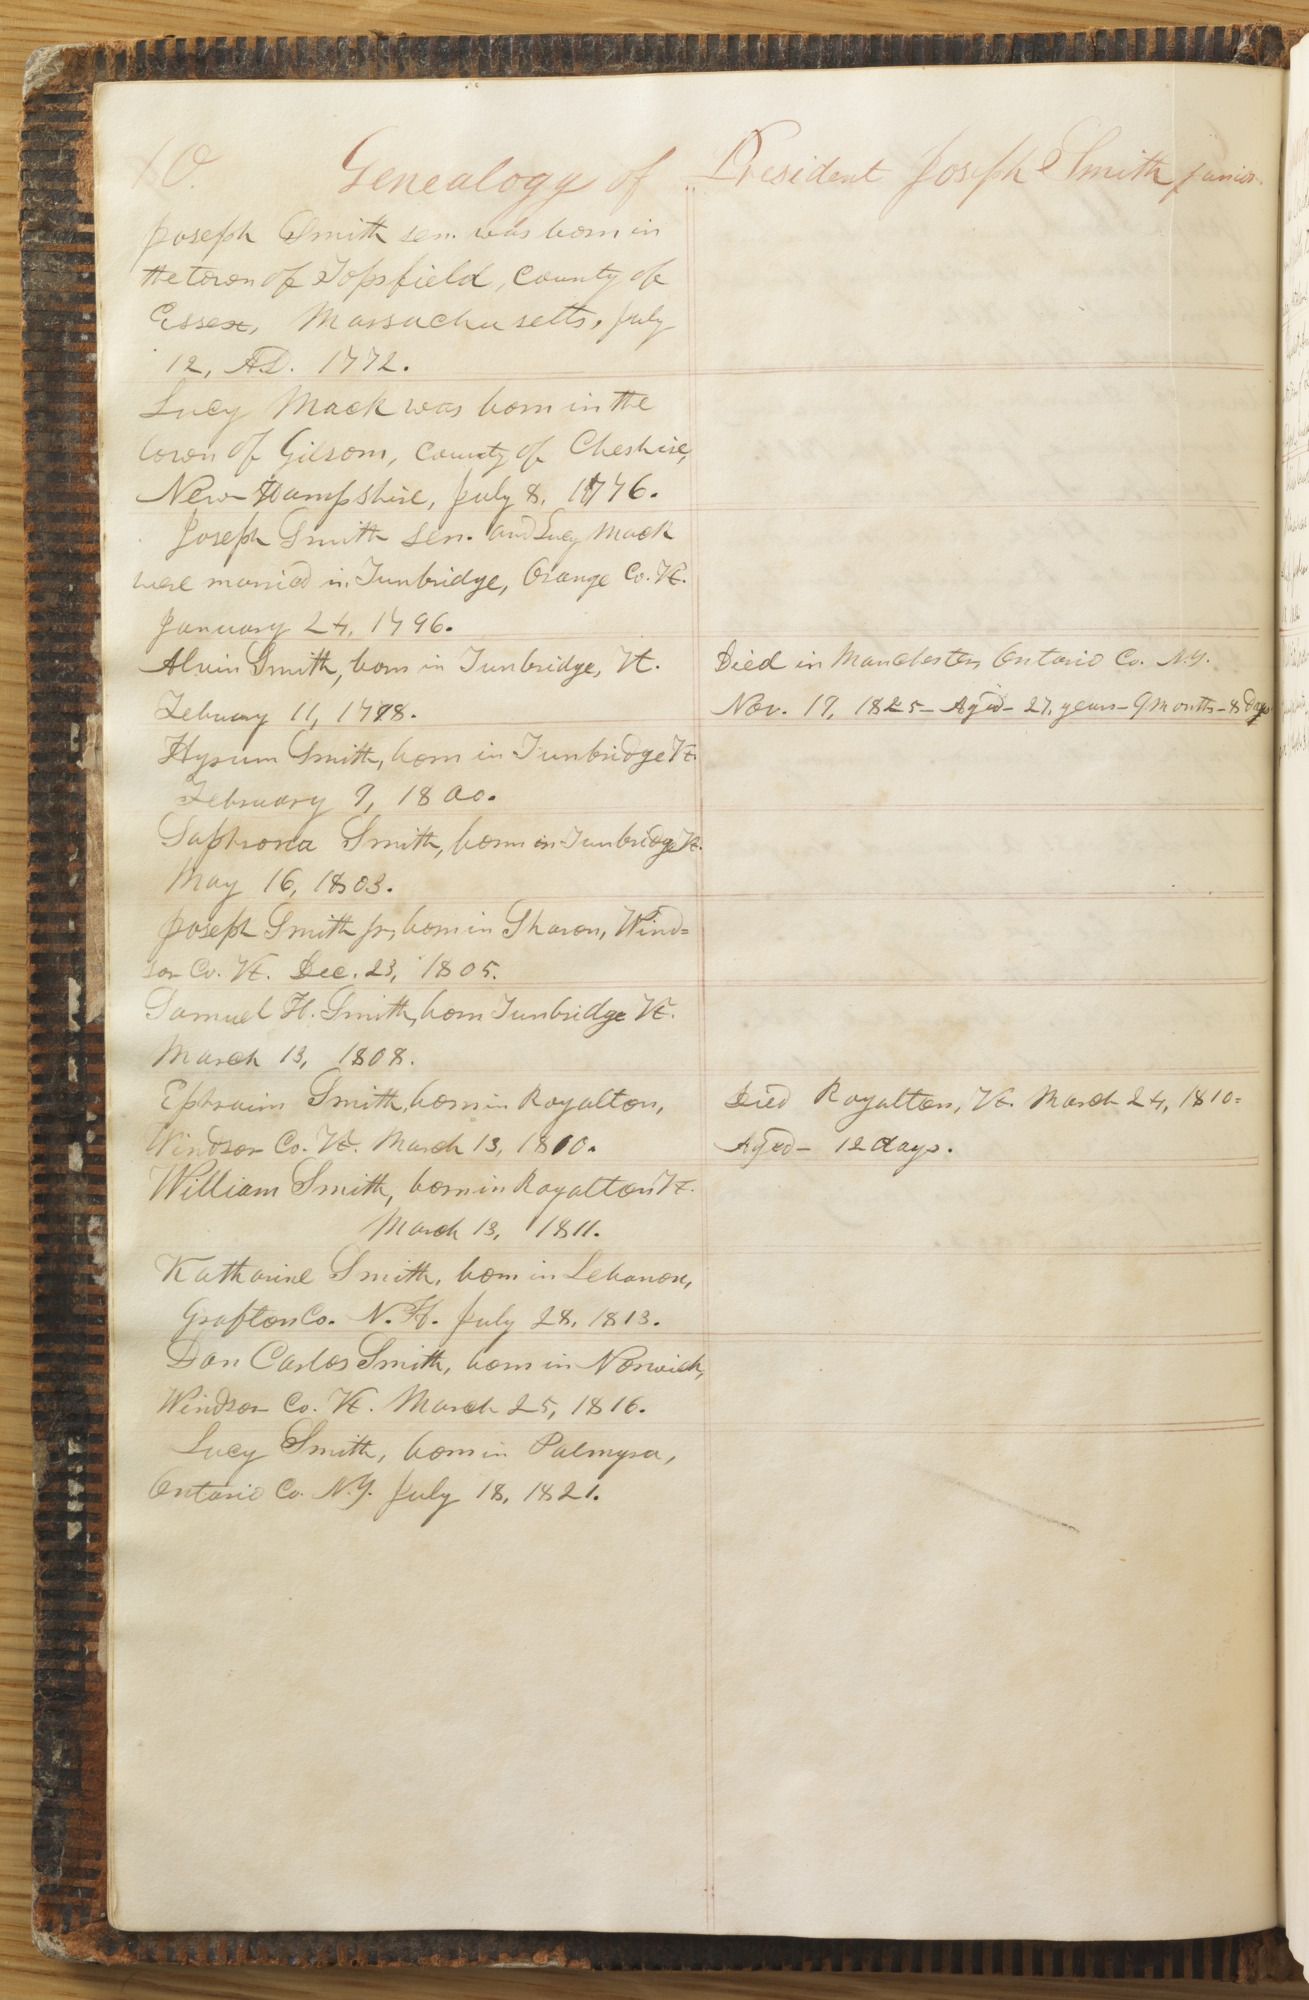 10. Genealogy of President Joseph Smith junior
Joseph Smith sen. was born in
the town of Topsfield, county of
Essex, Massachusetts, July
12, AD. 1772.
Lucy Mack was born in the
town of Gilsom, county of Cheshire,
New Hampshire, July 8, 1776.
Joseph Smith sen. and Lucy Mack
were married in Tunbridge, Orange Co. Vt.
January 24, 1796.
Alvin Smith, born in Tunbridge, Vt.
Febuary 11, 1798.
Died in Manchester, Ontario Co. N.Y.
Nov. 19, 1825 – Aged – 27, years – 9 months – 8 days
Hyrum Smith, born in Tunbridge Vt.
February 9, 1800.
Saphrona Smith, born in Tunbridge Vt.
May 16, 1803.
Joseph Smith jr, born in Sharon, Wind=
sor Co. Vt. Dec. 23, 1805.
Samuel H. Smith, born Tunbridge Vt.
March 13, 1808.
Ephraim Smith, born in Royalton,
Windsor Co. Vt. March 13, 1810.
Died Royalton, Vt. March 24, 1810=
Aged – 12 days.
William Smith, born in Royalton Vt.
March 13, 1811.
Katharine Smith, born in Lebanon,
Grafton Co. N.H. July 28, 1813.
Don Carlos Smith, born in Norwich,
Windsor Co. Vt. March 25, 1816.
Lucy Smith, born in Palmyra,
Ontario Co. N.Y. July 18, 1821.